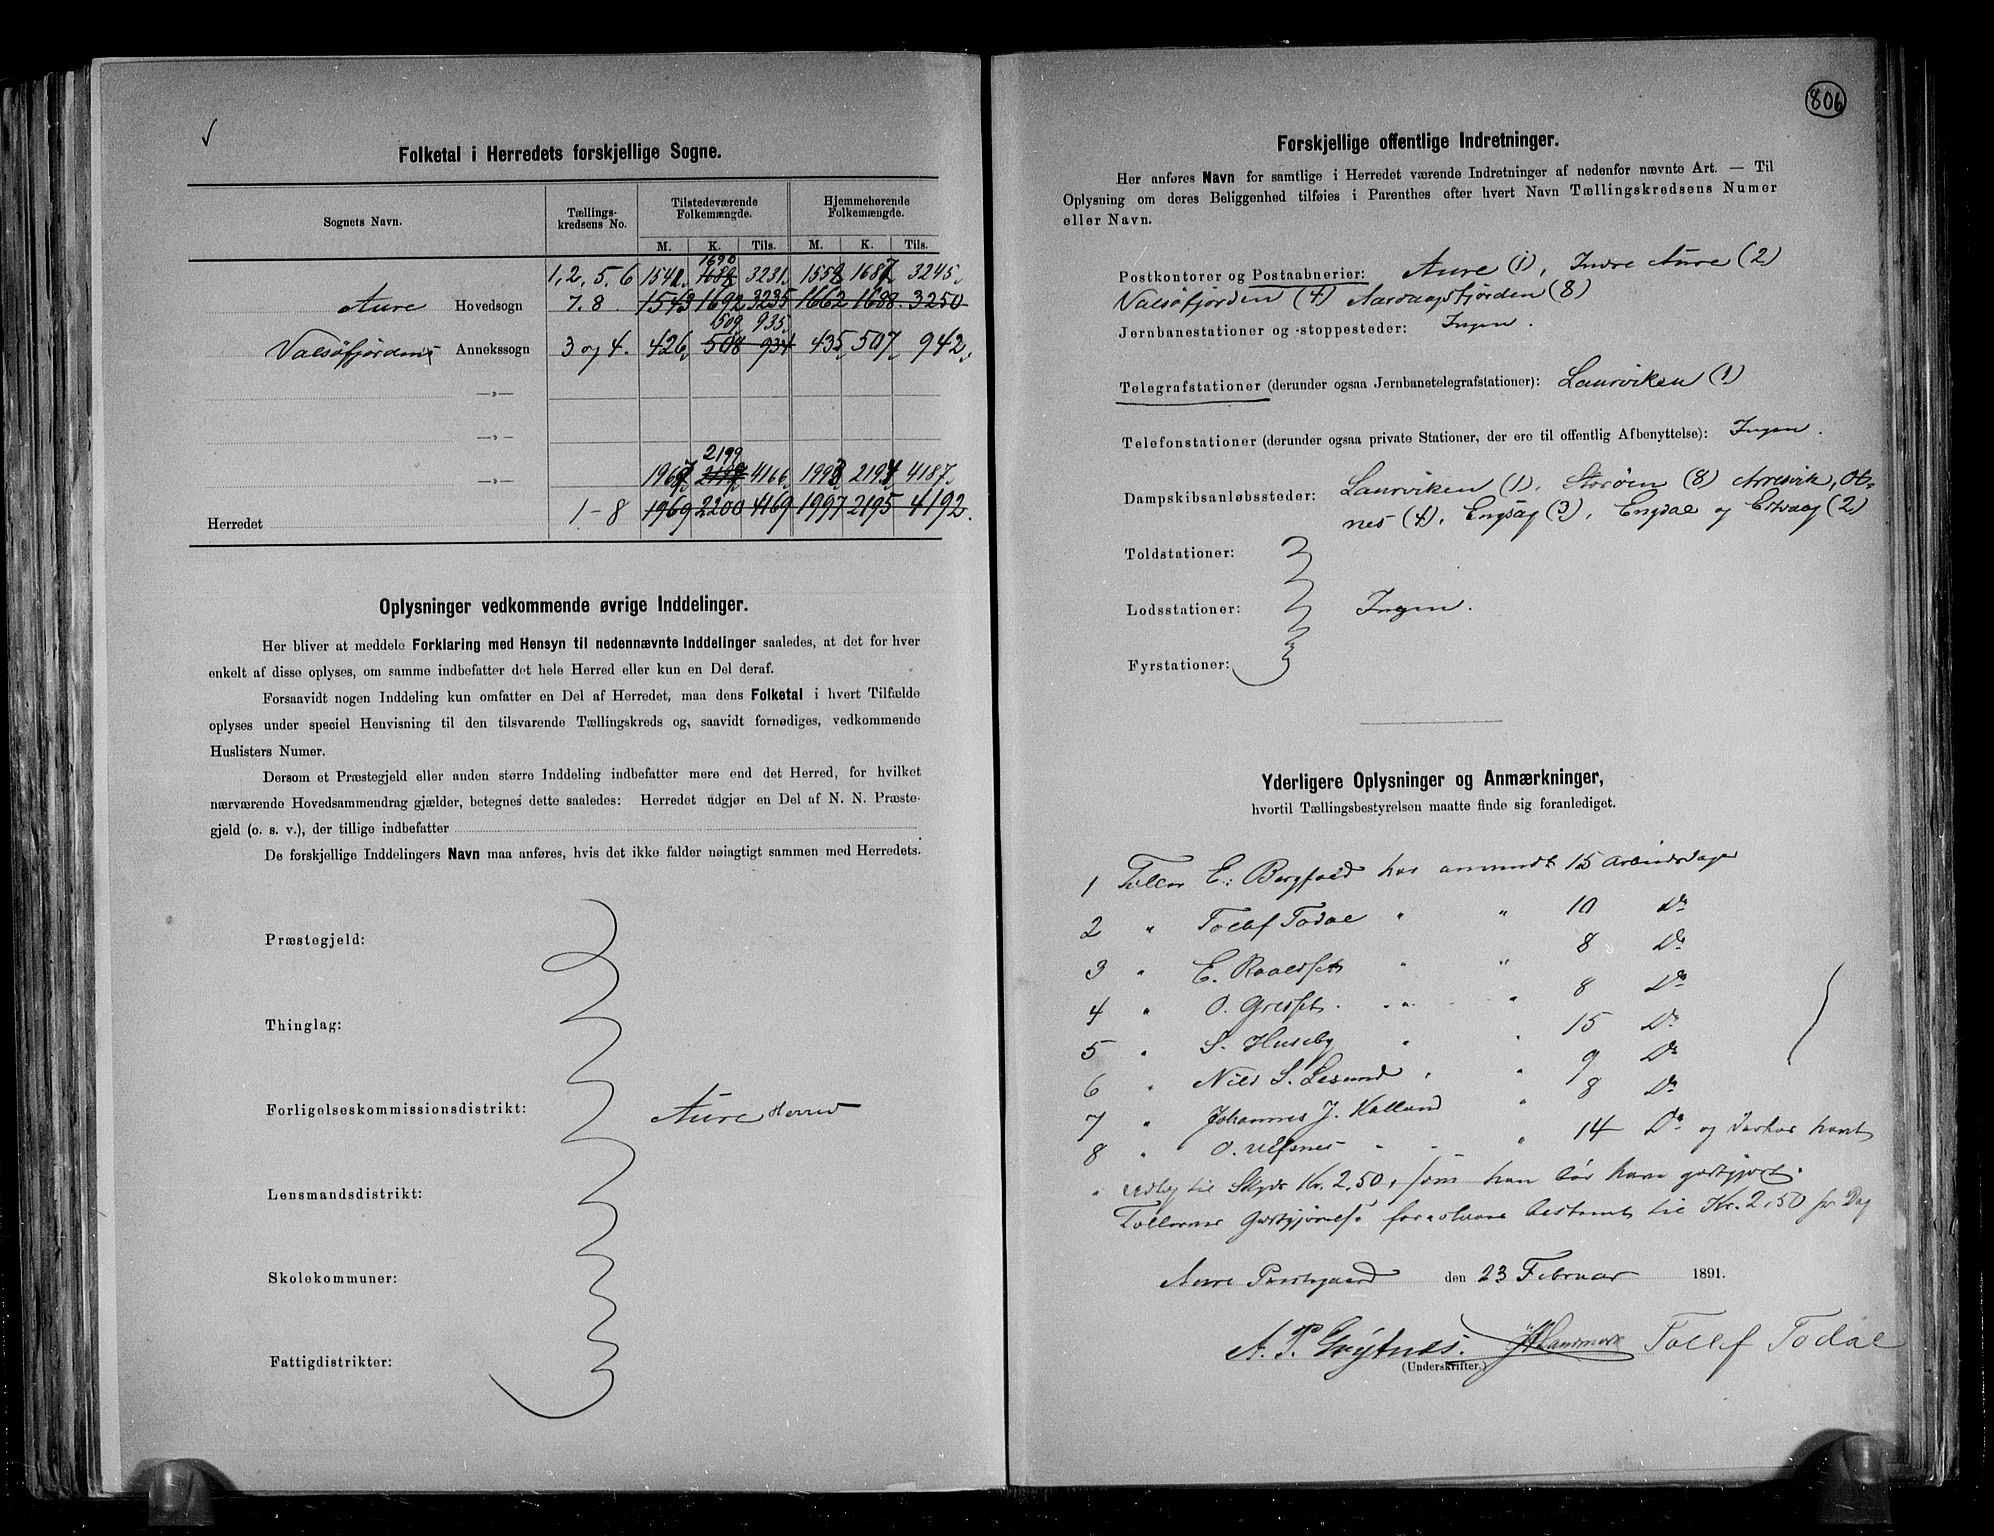 Folketal i Herredets forskjellige Sogne.
Sognets Navn.
Tællings-
kredsens No.
Tilstedeværende
Folkemængde.
Hjemmehørende
Folkemængde.
M. K. Tils. M. K. Tils.
1690
1,2,5.6 1541 1689 3231 1552 1687 3245
Aure Hovedsogn 7.8. 1543 1692 3235 1662 1688 3250
509 935
Valsøfjordens Annekssogn 3 og 4. 426 508 934 435 507 942
—»—
—»—
2199
—»— 1967 4166 1993 2194 4187
Herredet 1-8 1969 2200 4169 1997 2195 4192.
Oplysninger vedkommende øvrige Inddelinger.
Her bliver at meddele Forklaring med Hensyn til nedennævnte Inddelinger saaledes, at det for hver
enkelt af disse oplyses, om samme indbefatter det hele Herred eller kun en Del deraf.
Forsaavidt nogen Inddeling kun omfatter en Del af Herredet, maa dens Folketal i hvert Tilfælde
oplyses under speciel Henvisning til den tilsvarende Tællingskreds og, saavidt fornødiges, vedkommende
Huslisters Numer.
Dersom et Præstegjeld eller anden større Inddeling indbefatter mere end det Herred, for hvilket
nærværende Hovedsammendrag gjælder, betegnes dette saaledes: Herredet udgjør en Del af N. N. Præste-
gjeld (o. s. v.), der tillige indbefatter
De forskjellige Inddelingers Navn maa anføres, hvis det ikke falder nøiagtigt sammen med Herredets.
Præstegjeld:
Thinglag:
Forligelseskommissionsdistrikt: Aure Herred
Lensmandsdistrikt:
Skolekommuner:
Fattigdistrikter:
806
Forskjellige offentlige Indretninger.
Her anføres Navn for samtlige i Herredet værende Indretninger af nedenfor nævnte Art. — Til
Oplysning om deres Beliggenhed tilføies i Parenthes efter hvert Navn Tællingskredsens Numer
eller Navn.
Postkontorer og Postaabnerier: Aure (1), Indre Aure (2)
Valsøfjorden (4) Aarvaagsfjorden (8)
Jernbanestationer og -stoppesteder: Ingen.
Telegrafstationer (derunder ogsaa Jernbanetelegrafstationer): Laurviken (1)
Telefonstationer (derunder ogsaa private Stationer, der ere til offentlig Afbenyttelse): Ingen.
Dampskibsanløbssteder: Laurviken (1), Storøen (8) Arresvik, Ot-
nes (4), Engsag (3), Engdal og Estvaag (2)
Toldstationer:
Lodsstationer: Ingen.
Fyrstationer:
Yderligere Oplysninger og Anmærkninger,
hvortil Tællingsbestyrelsen maatte finde sig foranlediget.
1 Tæller E. Bergfald har anvendt 15 Arbeidsdage
2 " Tollef Todal " " 10 Do
3 " E. Roaldset " " 8 Do
4 " O. Gresset " " 8 Do
5 " S. Huseby " " 15 Do
6 " Nils S. Lesund " " 9 Do
7 " Johannes J. Kalland " 8 Do
8 " O. Ulfsnes " " 14 Do og desuden havt
" Udlæg til Skyds Kr. 2,50, som han bør have godtgjort.
Tællernes Godtgjørelse foreslaaes bestemt til Kr. 2,50 pr Dag
Aure Prestegaard den 23 Februar 1891.
A. P. Grytnes. Landmark Tollef Todal
(Underskrifter.)